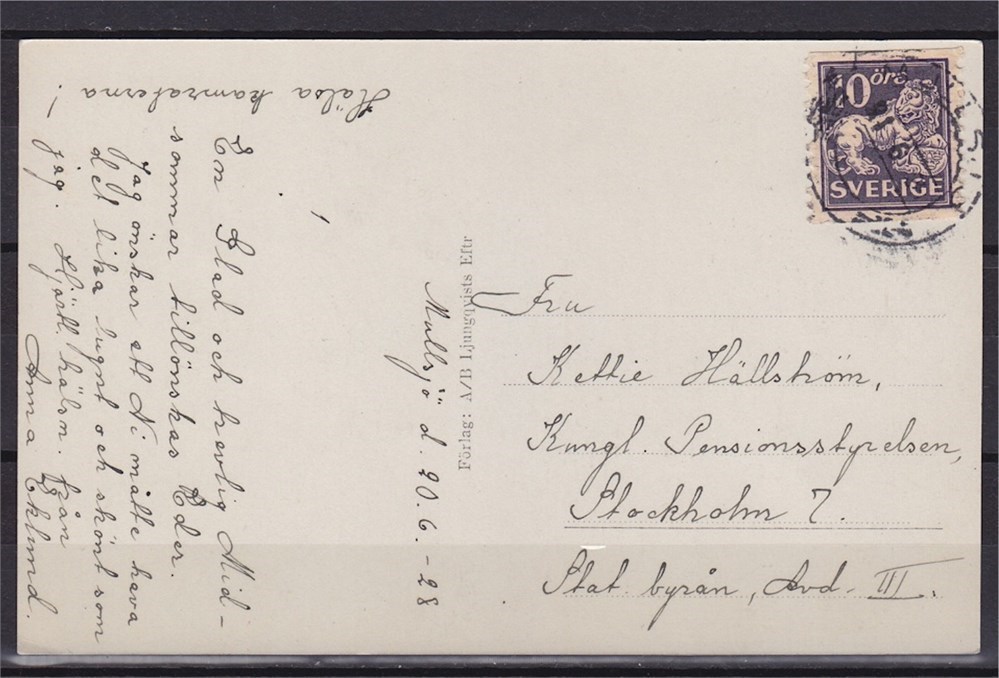 Mullsjö d. 20.6.-28
En Glad och trevlig Mid-
sommar tillönskas Eder.
Jag önskar att Ni måtte hava
det lika lugnt och skönt som
jag. Hjärtl. hälsn. från
Anna Eklund.
Hälsa kamraterna!
Förlag: A/B Ljungqvists Eftr
10 öre
SVERIGE
Fru
Kettie Hällström,
Kungl. Pensionsstyrelsen,
Stockholm 7.
Stat. byrån, Avd. III.